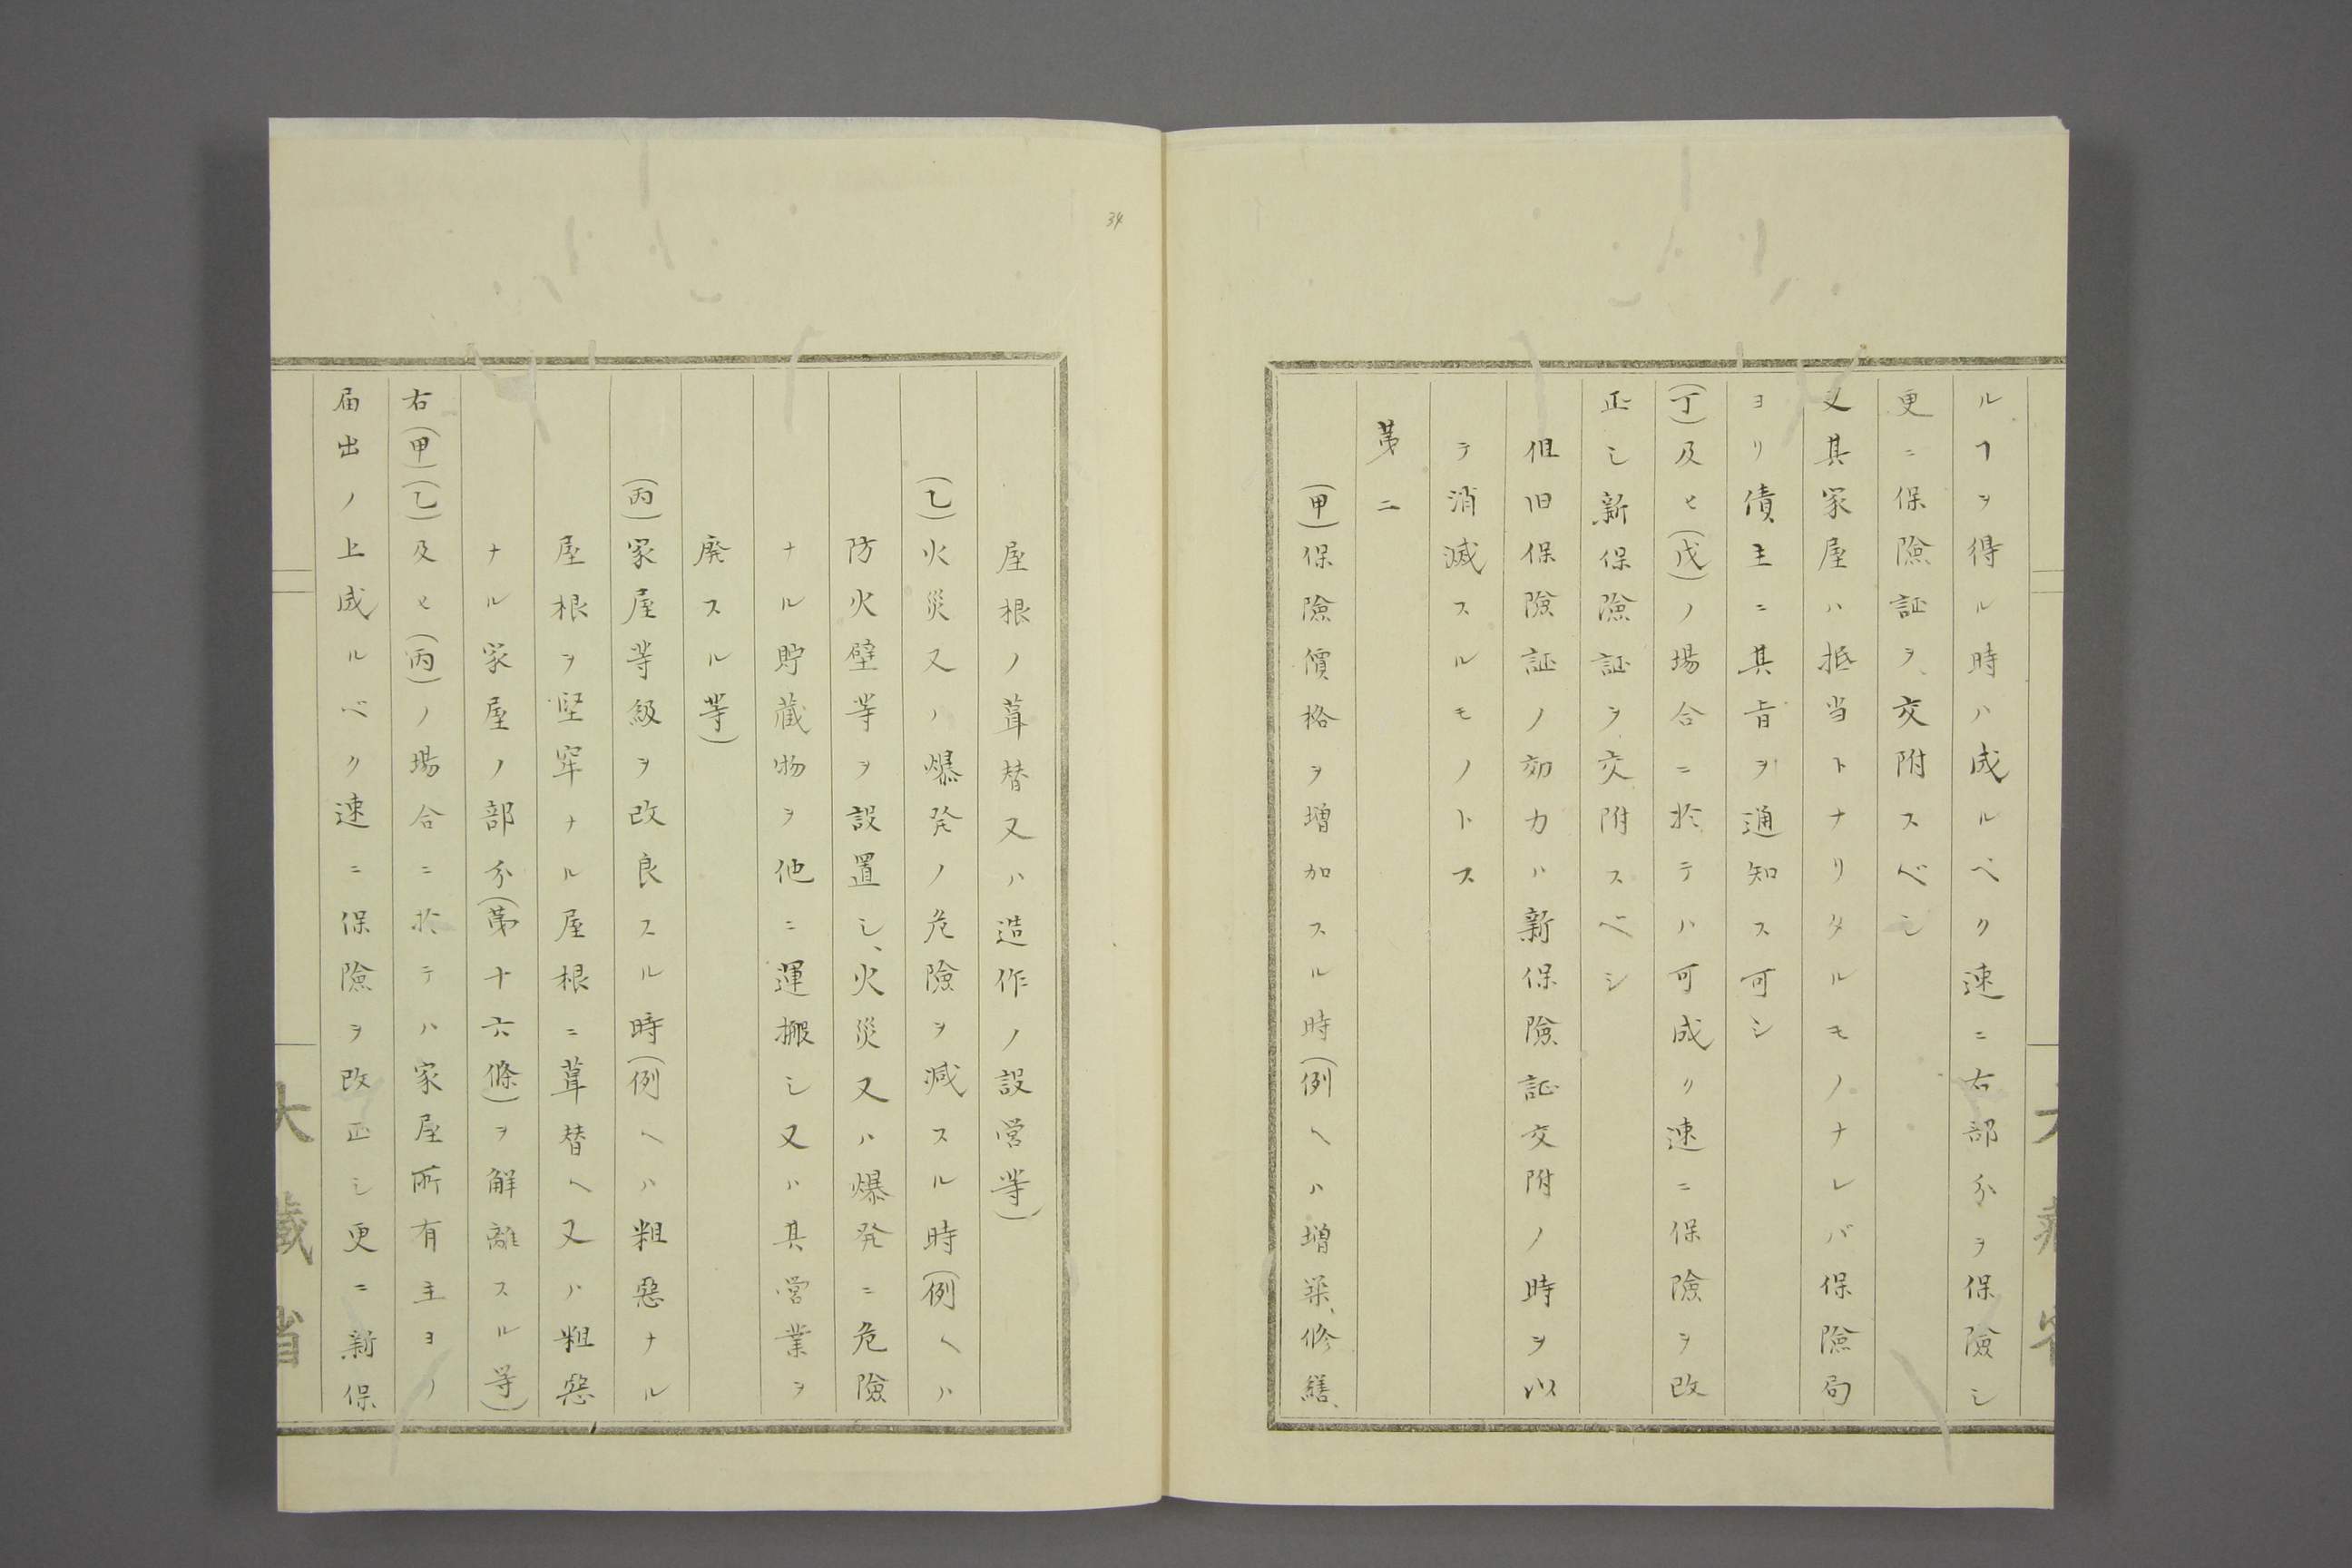 ルヿヲ得ル時ハ成ルベク速ニ右部分ヲ保險シ
更ニ保險証ヲ交附スベシ
又其家屋ハ抵当トナリタルモノナレバ保險局
ヨリ債主ニ其旨ヲ通知ス可シ
(丁)及ヒ(戊)ノ場合ニ於テハ可成リ速ニ保險ヲ改
正シ新保險証ヲ交附スベシ
但旧保險証ノ効力ハ新保險証交附ノ時ヲ以
テ消滅スルモノトス
第二
(甲)保險價格ヲ増加スル時(例ヘハ増築、修繕、
34
屋根ノ葺替又ハ造作ノ設営等)
(乙)火災又ハ爆発ノ危險ヲ減スル時(例ヘハ
防火壁等ヲ設置シ、火災又ハ爆発ニ危險
ナル貯蔵物ヲ他ニ運搬シ又ハ其営業ヲ
廃スル等)
(丙)家屋等級ヲ改良スル時(例ヘハ粗惡ナル
屋根ヲ堅牢ナル屋根ニ葺替ヘ又ハ粗惡
ナル家屋ノ部分(第十六條)ヲ解離スル等)
右(甲)(乙)及ヒ(丙)ノ場合ニ於テハ家屋所有主ヨリ
届出ノ上成ルベク速ニ保險ヲ改正シ更ニ新保
大藏省